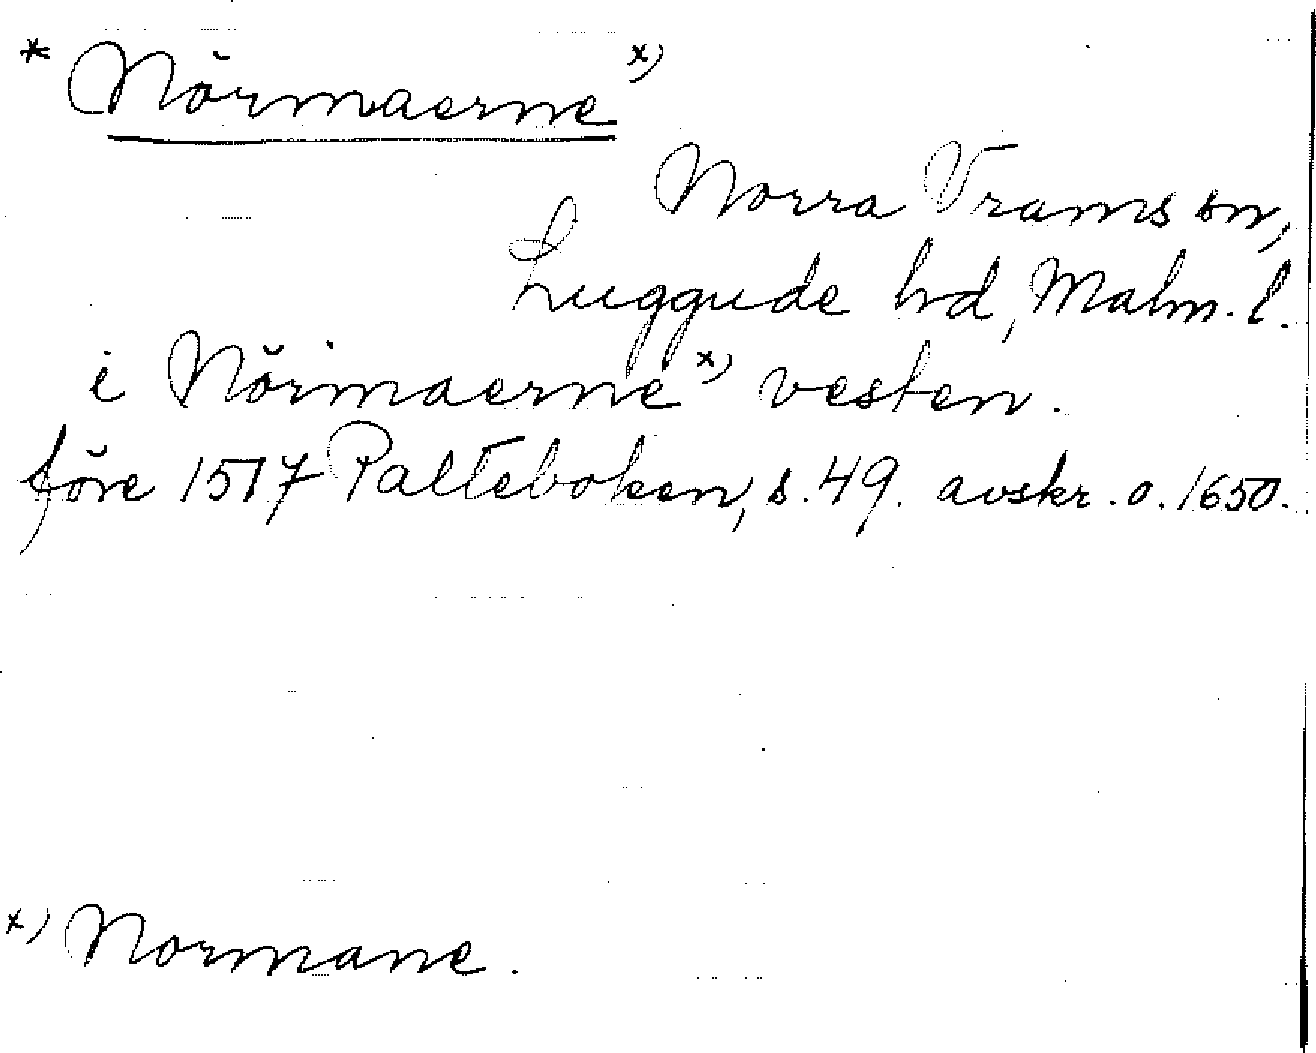 * Nörmaerne x)
Norra Vrams sn,
Luggude hd, Malm. l.
i Nörmaerne x) vesten.
före 1517 Palteboken, s. 49. avskr. o. 1650.
x) Normane.